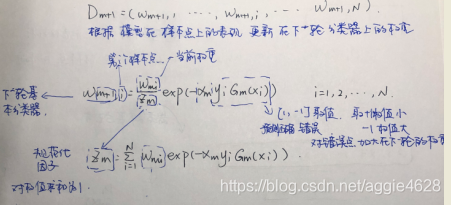 Dm+1=(wm+1,1, ···, wm+1,i, ··· wm+1,N)
根据 模型在 样本点上的表现 更新 在下一轮分类器上的权重
第i个样本点 当前权重
下一轮基本分类器 wm+1,i = wmi/zm exp(-αmyiGm(xi)) i=1,2,···,N
[1,-1]取值 取+1权值小
错误 -1权值大
对错误点 加大在下一轮的权重
规范化因子 zm = Σ(i=1到N) wmi exp(-αmyiGm(xi)).
对权值求和为1.
https://blog.csdn.net/aggie4628